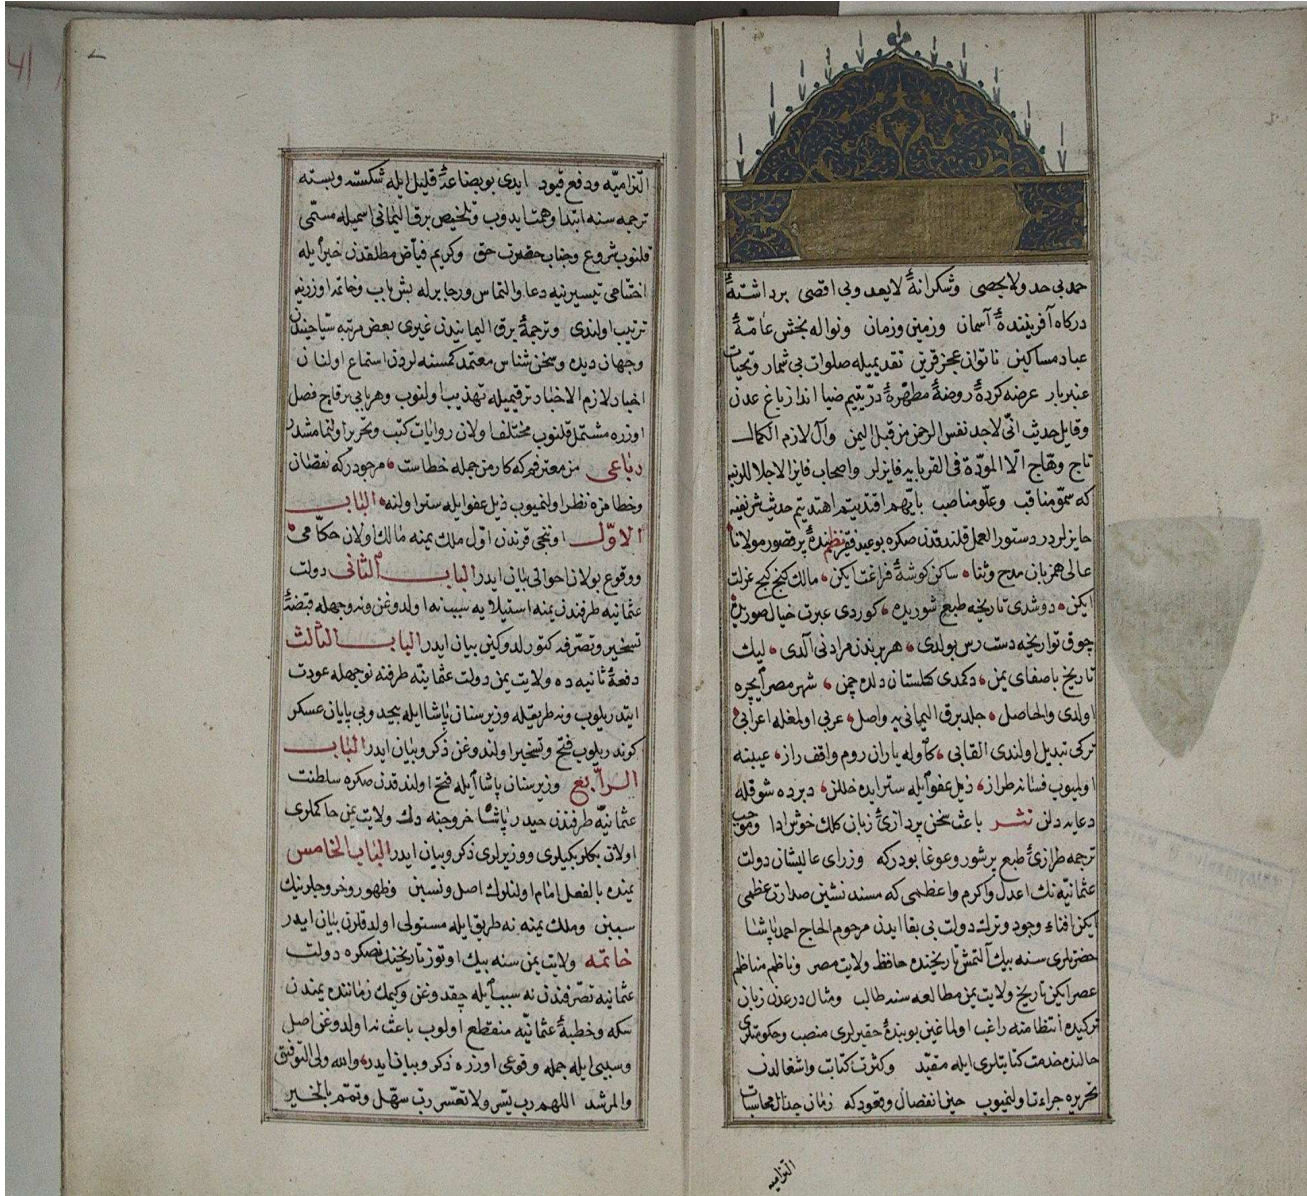 حمد بی حد ولا یحصی وشکرانهٔ لایعد وبی اقصی برداشتهٔ
درکاه آفرینندهٔ آسمان وزمین وزمان ونواله بخش عامهٔ
عباد مساکین ناتوان عجز قرین تقدیمیله صلوات بی شمار وتحیات
عنبربار عرضه کردهٔ روضهٔ مطهرهٔ درّ یتیم ضیا انداز باغ عدن
وقایل حدیث انّی لاجد نفس الرحمن من قبل الیمن وآل لازم الکمال
تاج وهّاج الّا المودّة فی القربایه فایزلر واصحاب فایز الاجلاللرینه
که سموّ مناقب وعلوّ مناصب بایّهم اقتدیتم اهتدیتم حدیث شریفنه
حایزلردر دستور العمل قلندقدن صکره بو عبد فقیر نظم بندهٔ پر قصور مولانا
عالی همزبان مدح وثنا ساکن کوشهٔ فراغت ایکن مالک کنج کنج عزلت
ایکن دوشدی تاریخه طبع شوریده کوردی عبرت خیال صوریده
چوق تواریخه دست رس بولدی هر برندن مرادنی آلدی لیک
تاریخ باصفای یمن دکمدی کلستان دلده چمن شهر مصر ایچره
اولدی والحاصل جلد برق الیمانی یه واصل عربی اولمغله اعرابی
ترکی تبدیل اولندی القابی کاوله یاران روم واقف راز عیبنه
اولمیوب فسانه طراز ذیل عفو ایله ستر ایده خللن دبرده شوقله
دعایه دلن نثر باعث سخن پردازیٔ زبان کلک خوش ادا وموجب
ترجمه طرازیٔ طبع پر شور وغوغا بودرکه وزرای عالیشان دولت
عثمانیّه نک اعدل واکرم واعظمی که مسند نشین صدارت عظمی
ایکن افناء وجود وترک دولت بی بقا ایدن مرحوم الحاج احمد پاشا
حضرتلری سنه بیک آلتمش تاریخنده حافظ ولایت مصر وناظم مناظم
عصر ایکن تاریخ ولایت یمن مطالعه سنه طالب ومثال در عدن زبان
ترکیده انتظامنه راغب اولماغین بو بندهٔ حقیرلری منصب وحکومتلری
حالنده خدمت کتابتلری ایله مقیّد وکثرت کتابت واشغالدن
تحریره جرات اولنمیوب حین انفصال وقعودکه زمان جدال محاسبات
التزامیه
التزامیّه ودفع قیود ایدی بو بضاعهٔ قلیل ایله شکسته وبسته
ترجمه سنه ابتدا وهمت ایدوب وتلخیص برق الیمانی اسمیله مسمّی
قلنوب شروع وجناب حضرت حق وکریم فیاض مطلقدن خیر ایله
اختتامی تیسیرنیه دعا والتماس ورجا برله بش باب وخاتمه اوزرینه
ترتیب اولندی وترجمهٔ برق الیمانیدن غیری بعض مرتبه سیاحیندن
وجهان دیده وسخن شناس معتمد کمسنه لردن استماع اولنان
اخبار لازم الاخبار ترقیمیله تهذیب اولنوب وهر بابی برقاچ فصل
اوزره مشتمل قلنوب مختلف اولان روایات کتب وتحریر اولنمامشدر
رباعی من معترفم که کار من جمله خطاست هر جودر که نقصان
وخطامزه نظر اولنمیوب ذیل عفو ایله ستر اولنه الباب
الاوّل اوننجی قرندن اول ملک یمنه مالک اولان حکّامی
ووقوع بولان احوالی بیان ایدر الباب الثانی دولت
عثمانیه طرفندن یمنه استیلایه سبب نه اولدوغن ونه وجهله قبضهٔ
تسخیر وتصرّفه کتورلدوکین بیان ایدر الباب الثالث
دفعهٔ ثانیه ده ولایت یمن دولت عثمانیّه طرفنه نوجهله عودت
ایتدریلوب ونه طریقیله وزیر سنان پاشا ایله بیحد وبی پایان عسکر
کوندریلوب فتح وتسخیر اولندوغن ذکر وبیان ایدر الباب
الرابع وزیر سنان پاشا ایله فتح اولندقدن صکره سلطنت
عثمانیّه طرفندن حیدر پاشا خروجنه دک ولایت یمن حاکملری
اولان بکلربکیلری ووزیرلری ذکر وبیان ایدر الباب الخامس
یمنده بالفعل امام اولنلروک اصل ونسبن وظهور وخروجلرینک
سببن وملک یمنه نه طریق ایله مستولی اولدقلرن بیان ایدر
خاتمه ولایت یمن سنه بیک اوتوز تاریخیندنصکره دولت
عثمانیه تصرّفندن نه سبب ایله چقدوغن وکیمک زماننده یمندن
سکه وخطبهٔ عثمانیّه منقطع اولوب باعث نه اولدوغن اصل
وسببی ایله جمله وقوعی اوزره ذکر وبیان ایدر والله ولی التوفیق
والمرشد اللهم رب یسّر ولا تعسّر رب سهّل وتمّم بالخیر